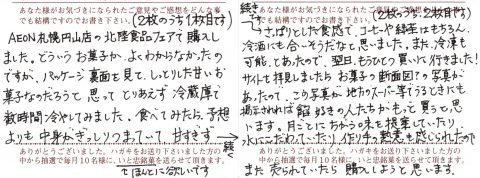 あなた様がお気づきになられたご意見やご感想をどんな事
でも結構ですのでお書き下さい。(2枚のうち1枚目です)
AEON札幌円山店の北陸食品フェアで購入し
ました。どういうお菓子か、よくわからなかったの
ですが、パッケージ裏面を見て、しっとりした甘いお
菓子なのだろうと思って とりあえず冷蔵庫で
数時間冷やしてみました。食べてみたら、予想
よりも中身がぎっしりつまっていて 甘すぎず
ありがとうございました。ハガキをお送り下さいました方の
中から抽選で毎月10名様に、いと忠銘菓を送らせて頂きます。
続く
続き
あなた様がお気づきになられたご意見やご感想をどんな事
でも結構ですのでお書き下さい。(2枚のうち2枚目です)
さっぱりとした食感で、コーヒーや緑茶はもちろん、
冷酒にも合いそうだなと思いました。また、冷凍も
可能、とあったので、翌日、もうひとつ買いに行きました!
サイトも拝見しましたら お菓子の断面図?の写真が
あったので、この写真が地方のスーパー等でうるときにも
掲示されれば 餡好きの人たちがもっと買うと思
います。月ごとにちがう味を提案していたり、
水にこだわっていたり 作り手の熱意も感じられたので
ありがとうございました。ハガキをお送り下さいました方の
中から抽選で毎月10名様に、いと忠銘菓を送らせて頂きます。
また 売られていたら 購入しようと思います。
てほんとに欲しいです